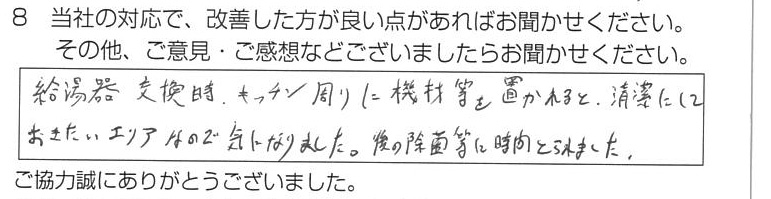 8 当社の対応で、改善した方が良い点があればお聞かせください。
その他、ご意見・ご感想などございましたらお聞かせください。
給湯器 交換時、キッチン周りに機材等を置かれると、清潔にして
おきたいエリアなので気になりました。後の除菌等に時間とられました。
ご協力誠にありがとうございました。